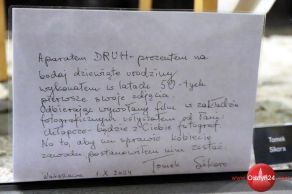 Aparatem DRUH - prezentem na
bodaj dziewiąte urodziny
wykonałem w latach 50-tych
pierwsze swoje zdjęcia.
Odbierając wywołany film w zakładzie
fotograficznym usłyszałem od Pani
chłopcze - będzie z Ciebie fotograf.
No to, aby nie sprawić kobiecie
zawodu postanowiłem nim zostać
Tomek Sikora
Warszawa 1.X 2024
Tomek
Sikora
Olsztyn24.com